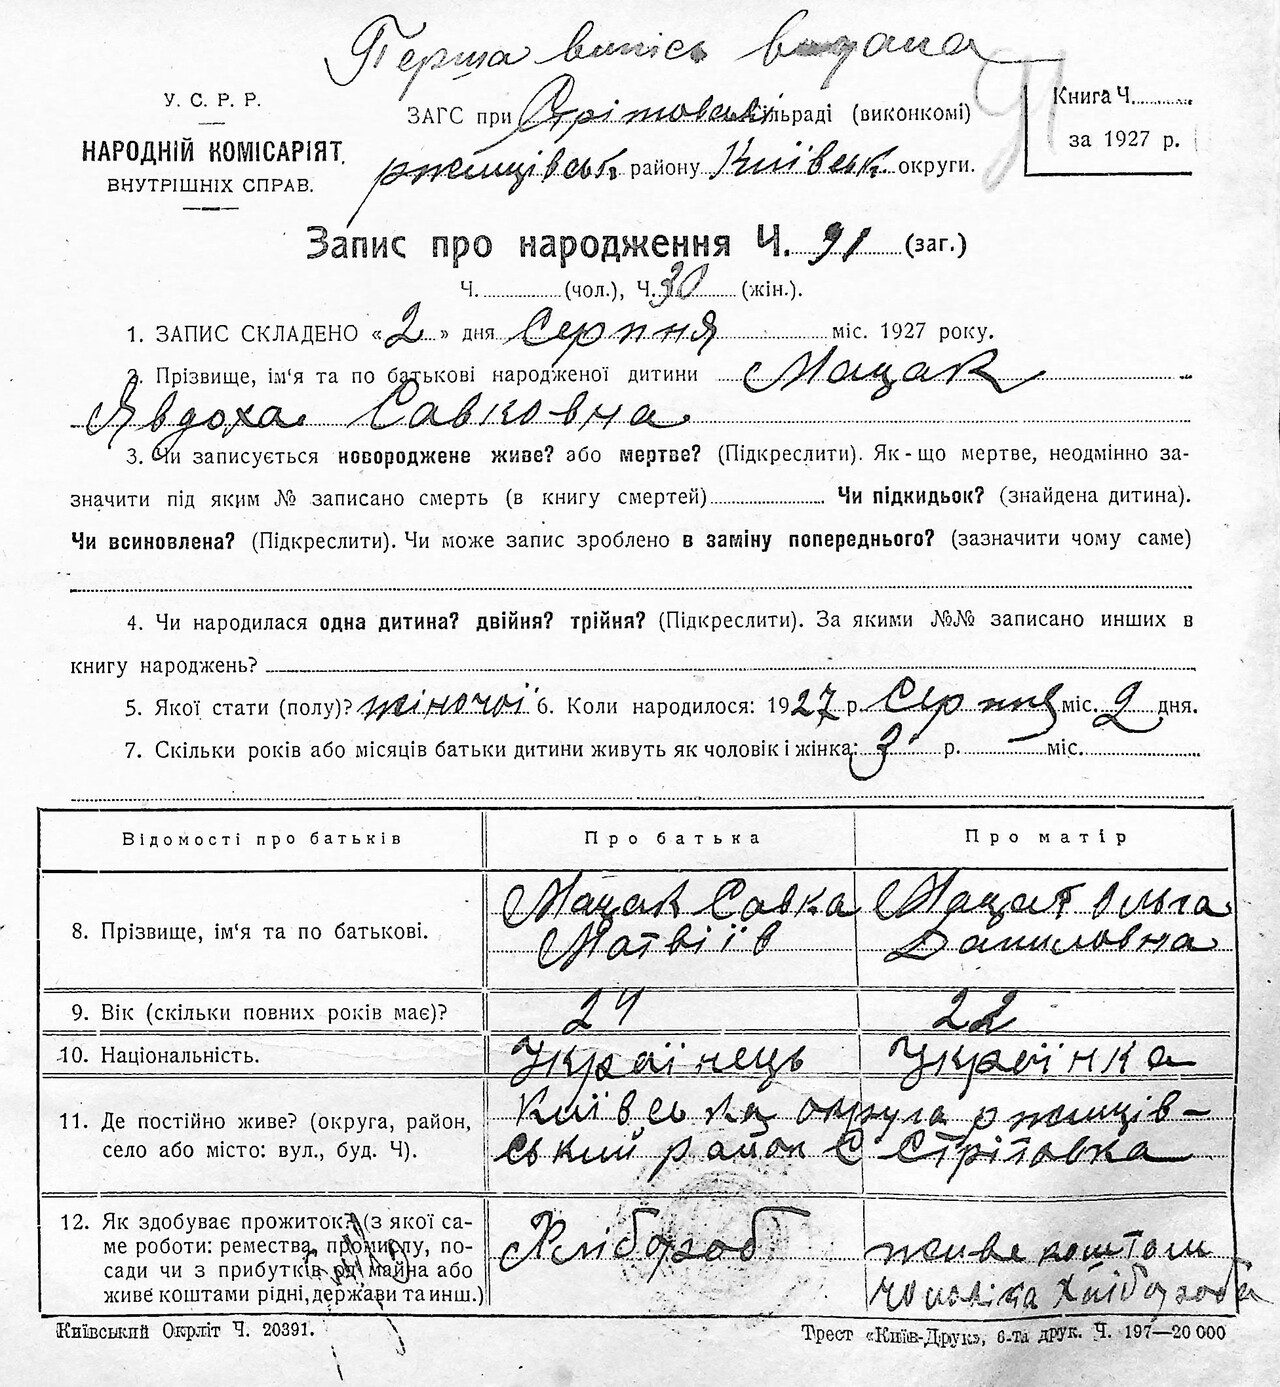 Перша випісь видана
У. С. Р. Р.
НАРОДНІЙ КОМІСАРІЯТ
ВНУТРІШНІХ СПРАВ.
ЗАГС при Стрітовські сільраді (виконкомі)
ржищівськ району Київськ округи.
Книга Ч.
за 1927 р.
91
Запис про народження Ч. 91 (заг.)
Ч. (чол.), Ч. 30 (жін.).
1. ЗАПИС СКЛАДЕНО «2» дня Серпня міс. 1927 року.
2. Прізвище, ім'я та по батькові народженої дитини Мацак
Явдоха Савковна
3. Чи записується новороджене живе? або мертве? (Підкреслити). Як-що мертве, неодмінно за-
значити під яким № записано смерть (в книгу смертей) Чи підкидьок? (знайдена дитина).
Чи всиновлена? (Підкреслити). Чи може запис зроблено в заміну попереднього? (зазначити чому саме)
4. Чи народилася одна дитина? двійня? трійня? (Підкреслити). За якими №№ записано инших в
книгу народжень?
5. Якої стати (полу)? жіночої 6. Коли народилося: 1927 р. Серпня міс. 2 дня.
7. Скільки років або місяців батьки дитини живуть як чоловік і жінка: 3 р. міс.
Відомості про батьків Про батька Про матір
8. Прізвище, ім'я та по батькові.
Мацак Савка
Матвіїв
Мацак Ольга
Даниловна
9. Вік (скільки повних років має)? 24 22
10. Національність. Українець Українка
11. Де постійно живе? (округа, район,
село або місто: вул., буд. Ч).
Київська округа ржищів-
ський район С Стрітовка
12. Як здобуває прожиток? (з якої са-
ме роботи: ремества, промислу, по-
сади чи з прибутків від майна або
живе коштами рідні, держави та инш.)
Хлібороб
живе коштом
чоловіка хлібороба
Київський Окрліт Ч. 20391.
Трест «Київ-Друк», 6-та друк. Ч. 197—20 000